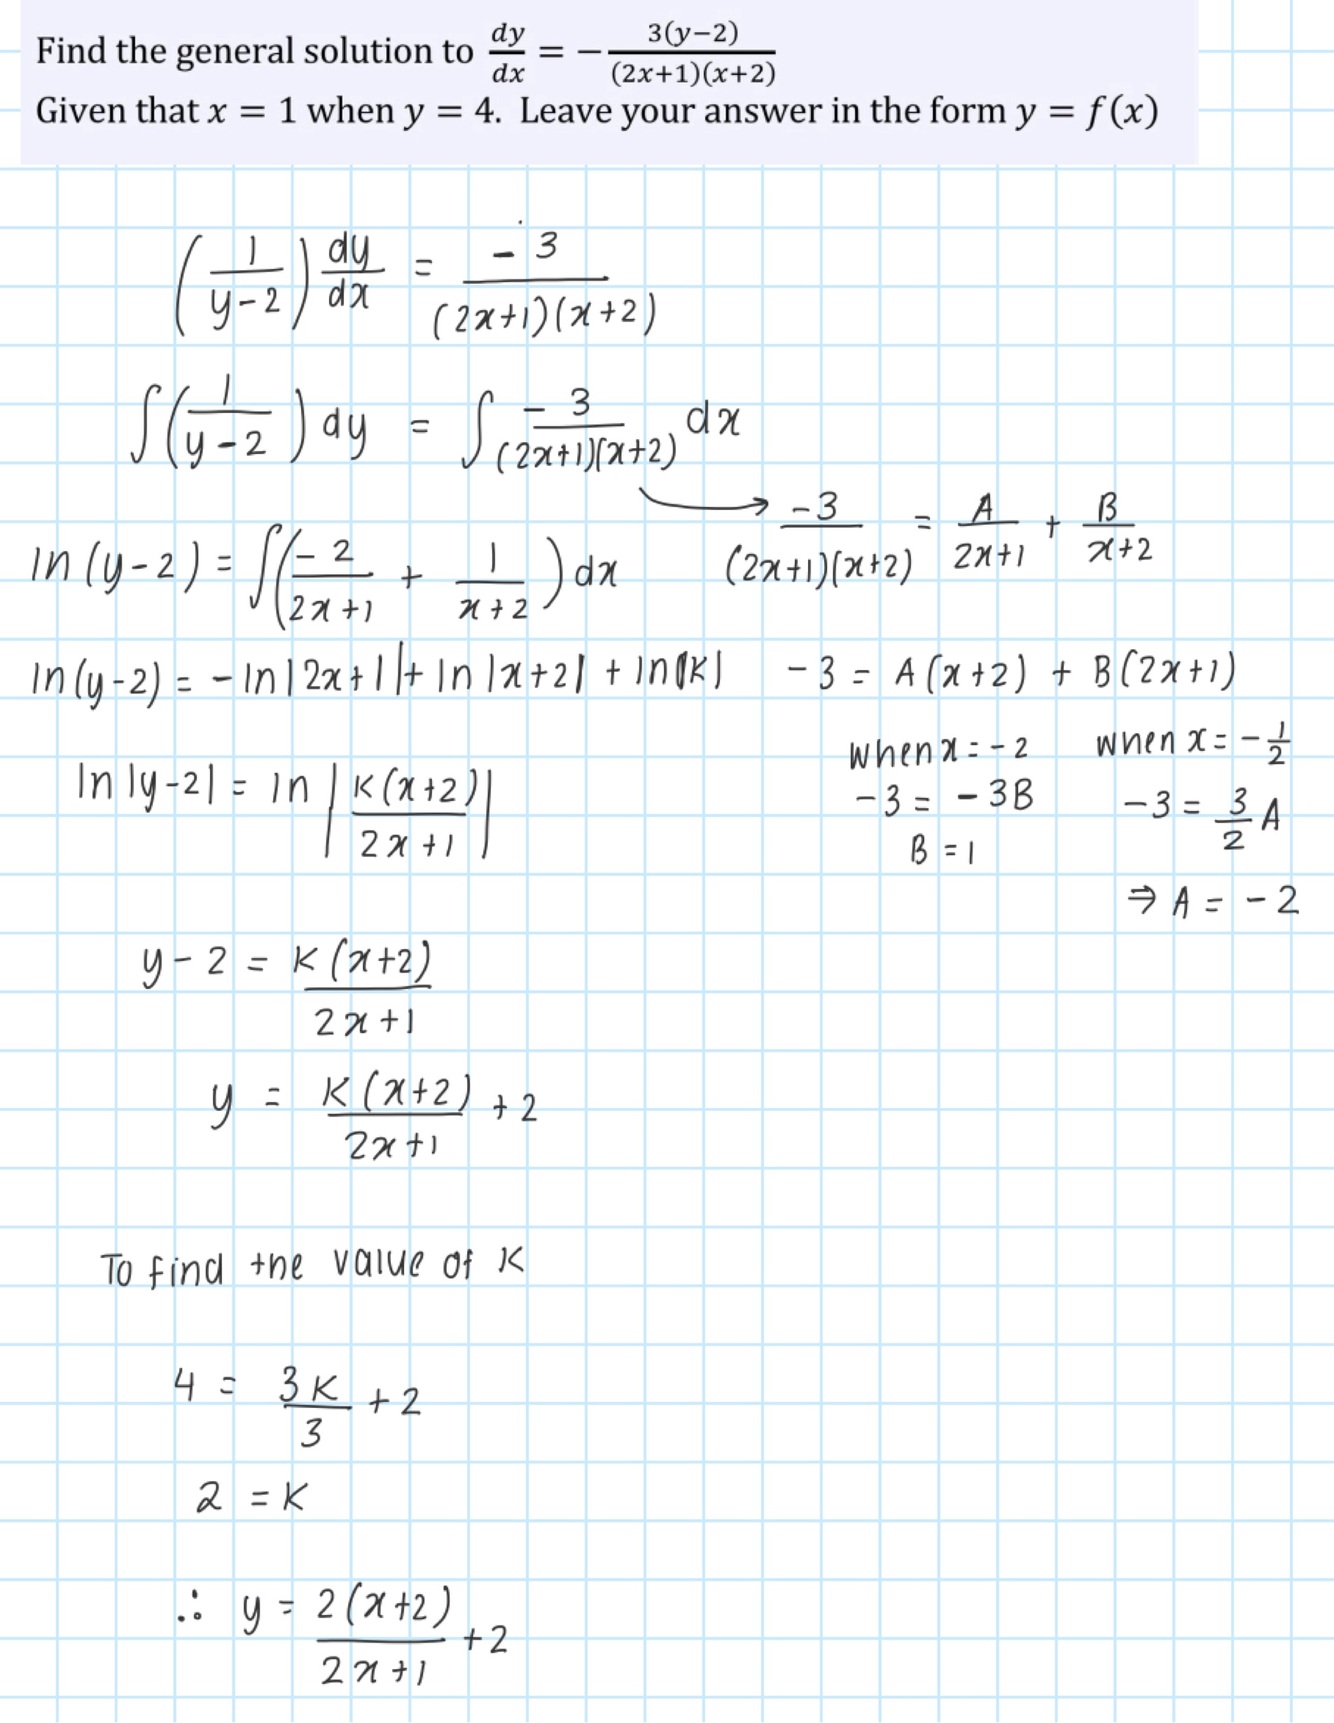 Find the general solution to dy/dx = − 3(y−2)/((2x+1)(x+2))
Given that x = 1 when y = 4. Leave your answer in the form y = f(x)
(1/(y-2)) dy/dx = -3/((2x+1)(x+2))
∫(1/(y-2)) dy = ∫ -3/((2x+1)(x+2)) dx
→ -3/((2x+1)(x+2)) = A/(2x+1) + B/(x+2)
ln(y-2) = ∫(-2/(2x+1) + 1/(x+2)) dx
ln(y-2) = -ln|2x+1| + ln|x+2| + ln|K|
-3 = A(x+2) + B(2x+1)
when x = -2
-3 = -3B
B = 1
when x = -1/2
-3 = 3/2 A
⇒ A = -2
ln|y-2| = ln|K(x+2)/(2x+1)|
y-2 = K(x+2)/(2x+1)
y = K(x+2)/(2x+1) + 2
To find the value of K
4 = 3K/3 + 2
2 = K
∴ y = 2(x+2)/(2x+1) + 2